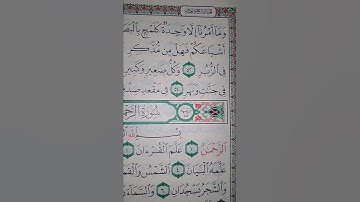 وَمَا أَمْرُنَا إِلَّا وَاحِدَةٌ كَلَمْحٍ بِالْبَصَ
أَشْيَاعَكُمْ فَهَلْ مِن مُّدَّكِرٍ
فِي الزُّبُرِ ٥٢ وَكُلُّ صَغِيرٍ وَكَبِيرٍ
فِي جَنَّاتٍ وَنَهَرٍ ٥٤ فِي مَقْعَدِ صِدْ
سُورَةُ الرَّحْ
بِسْمِ اللَّهِ
الرَّحْمَٰنُ ١ عَلَّمَ الْقُرْءَانَ ٢
عَلَّمَهُ الْبَيَانَ ٤ الشَّمْسُ وَالْقَمَ
وَالشَّجَرُ يَسْجُدَانِ ٦ وَالسَّمَاءَ